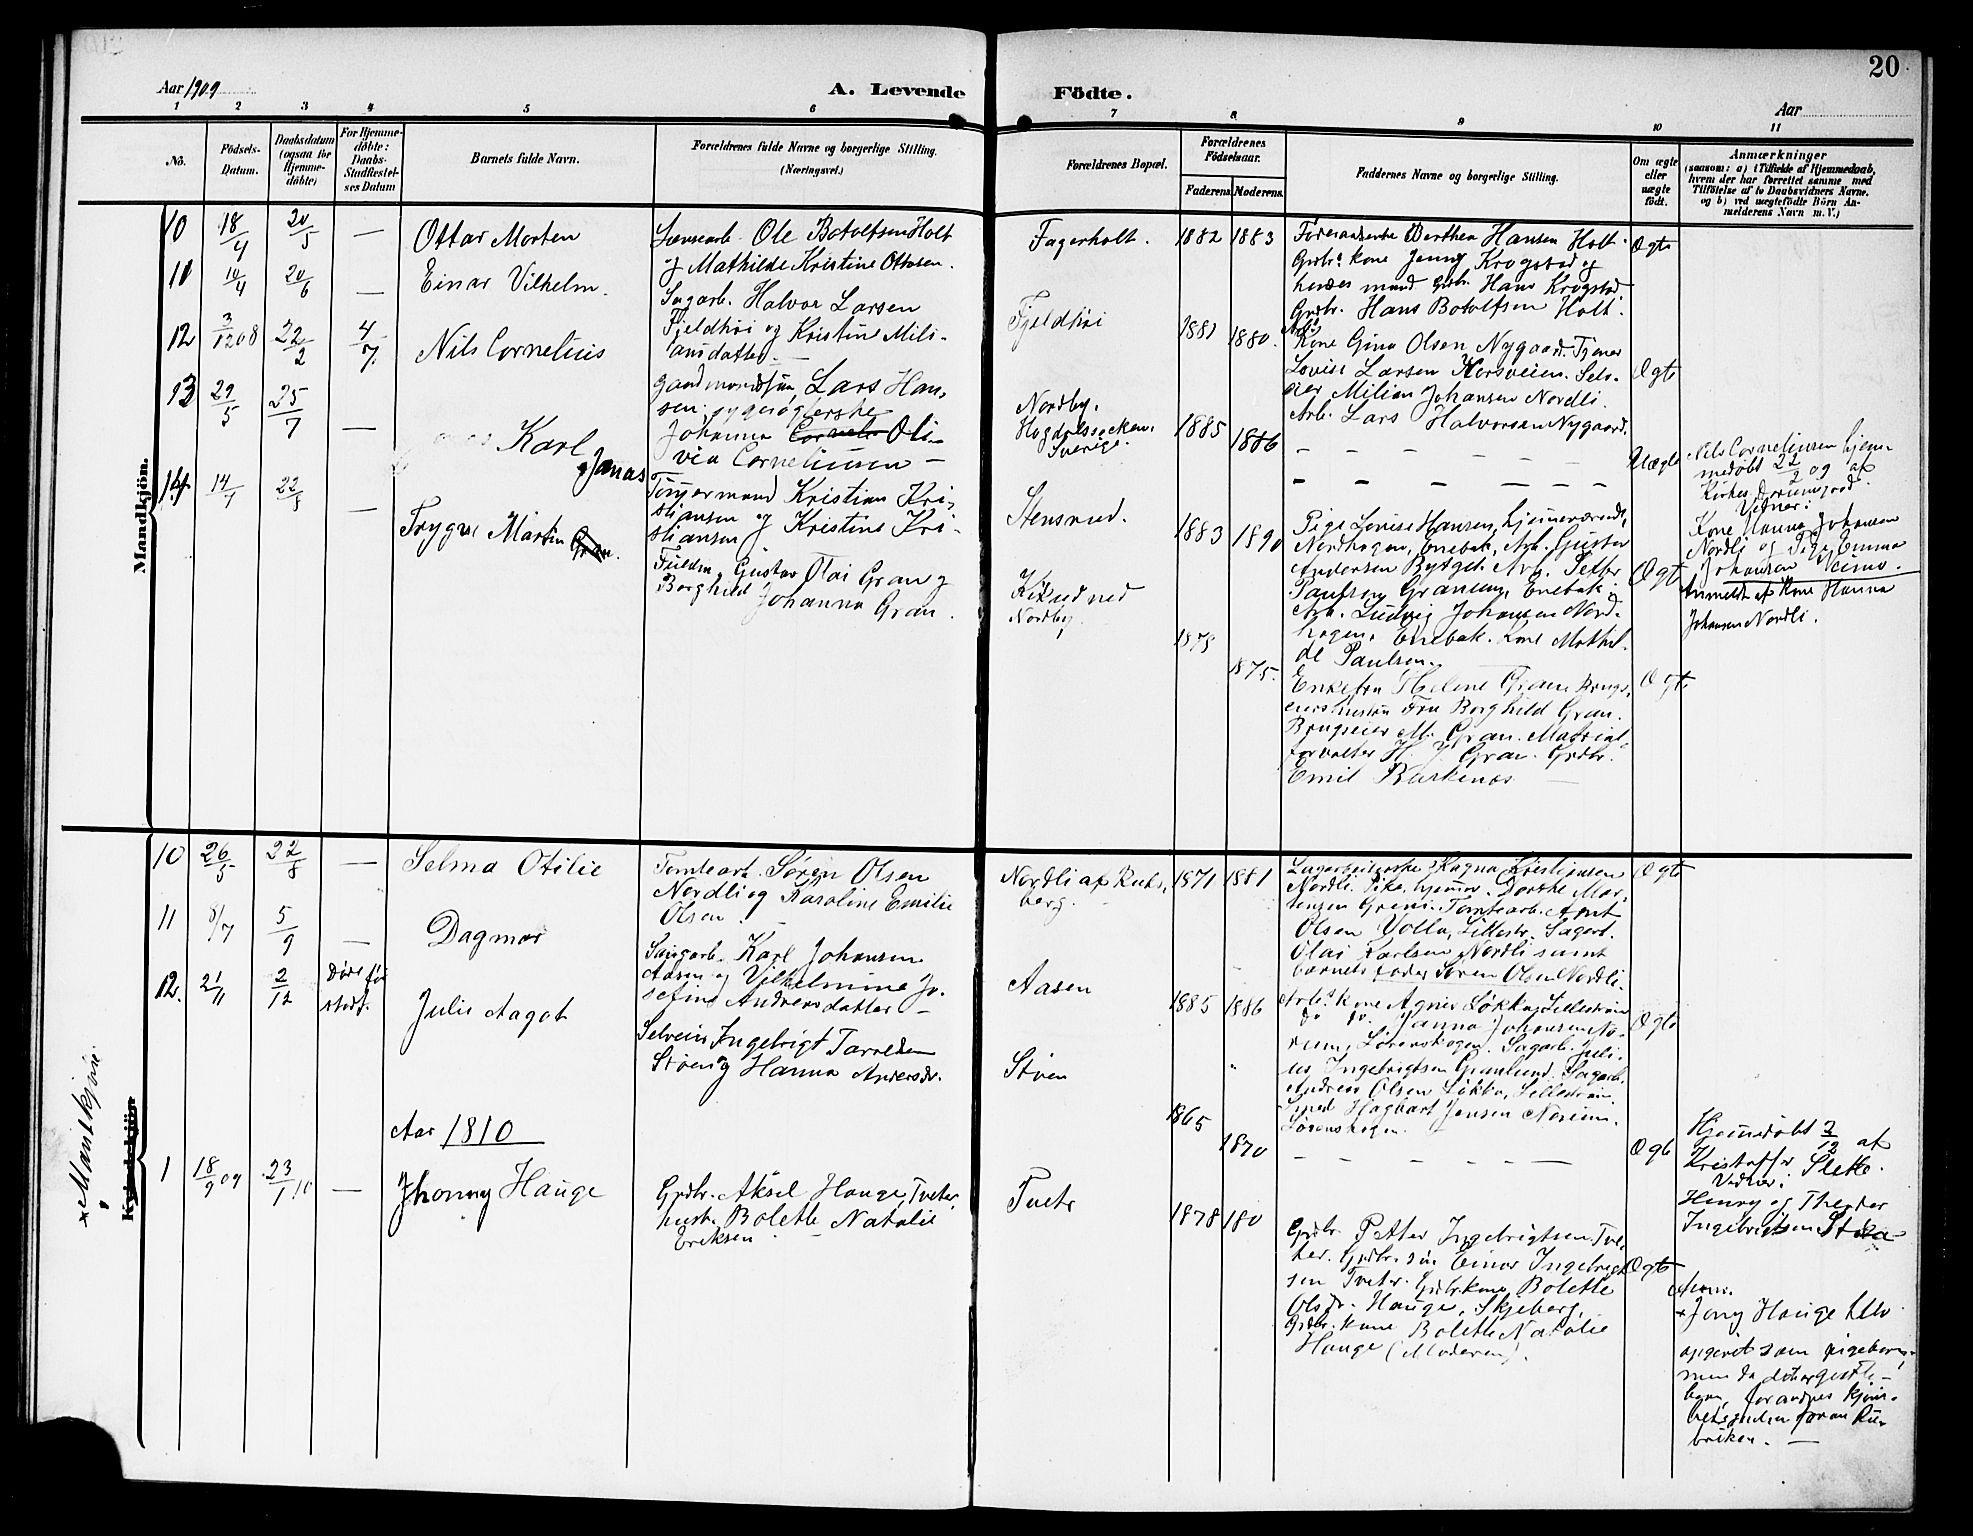 20
Aar 1909
A. Levende
Födte.
Aar
1 2 3 4 5 6 7 8 9 10 11
No.
Födsels-
Datum.
Daabsdatum
(ogsaa for
Hjemme-
döbte)
For Hjemme-
döbte:
Daabs-
Stadfæstel-
ses Datum
Barnets fulde Navn.
Forældrenes fulde Navne og borgerlige Stilling.
(Næringsvei.)
Forældrenes Bopæl.
Forældrenes
Födselsaar.
Faderens
Moderens.
Faddernes Navne og borgerlige Stilling.
Om ægte
eller
uægte
födt.
Anmærkninger
(saasom: a) i Tilfælde af Hjemmedaab,
hvem der har forrettet samme med
Tilföielse af to Daabsvidners Navne.
og b) ved uægtefödte Börn An-
melderens Navn m. V.)
Mandkjön.
10 18/4 20/5 —
Ottar Morten
Ole Botolfsen Holt
og Mathilde Kristine Ottosen.
Fagerholt.
1882 1883
Berthea Hansen Holt.
Grdbr. kone Jenny Krogstad og
hendes mand Grdbr. Hans Krogstad.
Grdbr. Hans Botolfsen Holt.
Ægte
11 10/4 20/6 —
Einar Vilhelm.
Sagarb. Halvor Larsen
Fjeldhöi og Kristine Mili-
ansdatter —
Fjeldhöi
1881 1880.
Kone Gina Olsen Nygaard. Tjener
Lovise Larsen Korsveien. Selv-
eier Milian Johansen Nordli.
Arb. Lars Halvorsen Nygaard.
Ægte
12 3/12 08 22/2 4/7.
Nils Cornelius
Gaardmandssön, Lars Han-
sen, sygerögterske
Johanna Cornelia Oli-
via Corneliusen —
Nordby,
Sverige.
1885 1886
— — — — — —
— — — — — —
Uægte
Nils Corneliusen hjem-
medöbt 22/2 09 af
Vidner:
Kone Hanna Johansen
Nordli og Pige Emma
Johansen
Anmeldt af Kone Hanna
Johansen Nordli.
13 29/5 25/7 —
Karl
Jonas
Tömmermand Kristian Kri-
stiansen og Kristine Kri-
stiansen
Stensrud.
1883 1890
Pige Lovise Hansen, hjemmeværende,
Nordhagen, Enebak, Arb. Gustav
Andersen Arb. Petter
Paulsen Enebak og
Arb. Ludvig Johansen Nord-
hagen, Enebak. Kone Mathil-
de Paulsen.
Ægte
14 14/7 22/8 —
Trygve Martin Gran.
Gustav Olai Gran og
Borghild
Johanna Gran.
Nordby.
1875 1875.
Enkefru Helene Gran
Fru Borghild Gran.
Brugseier M. Gran. Matrial-
forvalter H. J. Gran. Grdbr.
Emil
Ægte
× Mandkjön.
Kvindekjön
10 26/5 22/8 —
Selma Otilie
Tomtearb. Sören Olsen
Nordli og Karoline Emilie
Olsen.
Nordli af Ruds-
berg.
1871 1881
Ragna Kristiansen
Nordli. Pike, hjemmev. Dorthe Mar-
tensen Tomtearb. Arnt
Olsen Volla, Lillestr. Sagarb.
Olai Karlsen Nordli samt
barnets fader Sören Olsen Nordli.
Ægte
11 8/7 5/9 —
Dagmar
Sagarb. Karl Johansen
Aasen og Vilhelmine Jo-
sefine Andreasdatter —
Aasen
1885 1886
Arb.s kone Agnes Lökka, Lilleström
do do. Janna Johansen No-
rum, Lörenskogen. Sagarb. Juli-
us Ingebrigtsen Granlund. Sagarb.
Andreas Olsen Lökka, Lilleström.
Smed Hagbart Jensen Norum,
Lörenskogen.
Ægte
12. 2/11 2/12
Döde för
stadf.
Julie Aagot
Selveier Ingebrigt Tarvelsen
Stöen og Hanna Andersdr.
Stöen
1865 1870
— — — — — —
Ægte
Hjemmedöbt 2/12 af
Kristoffer Slette.
Vidner:
Henry og Theodor
Ingebrigtsen
Aar 1810
1 18/9 09 23/1 10 —
Jhonny Hauge
Grdbr. Aksel Hauge, Tveter,
hust. Bolette Natalie
Eriksen. —
Tveter
1878 180
Grdbr. Petter Ingebrigtsen Tve-
ter. Grdbr. sön Einar Ingebrigt-
sen Tveter. Grdbr. kone Bolette
Olsdr. Hauge, Skjeberg,
Grdbr. kone Bolette Natalie
Hauge (Moderen).
Ægte
Anm.
× Jony Hauge blev
opgivet som pigebarn,
men da det er gutte-
barn, forandres kjön-
betegnelsen foran Ru-
briken. —